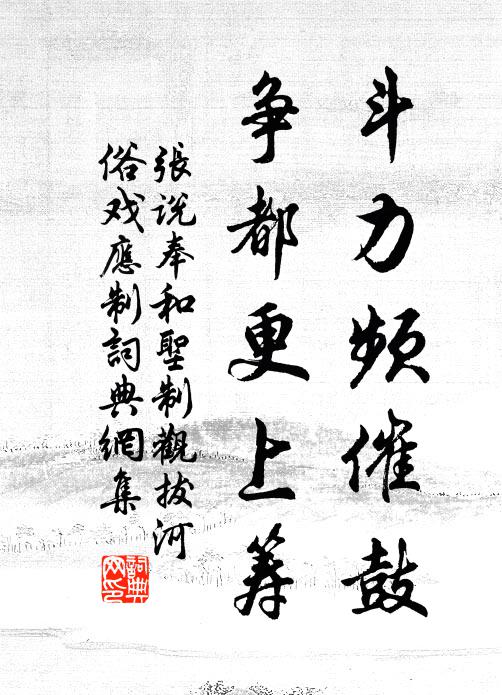 斗力频催鼓
争都更上筹
張说奉和聖制觀拔河
俗戏應制詞典網集
詞典网印